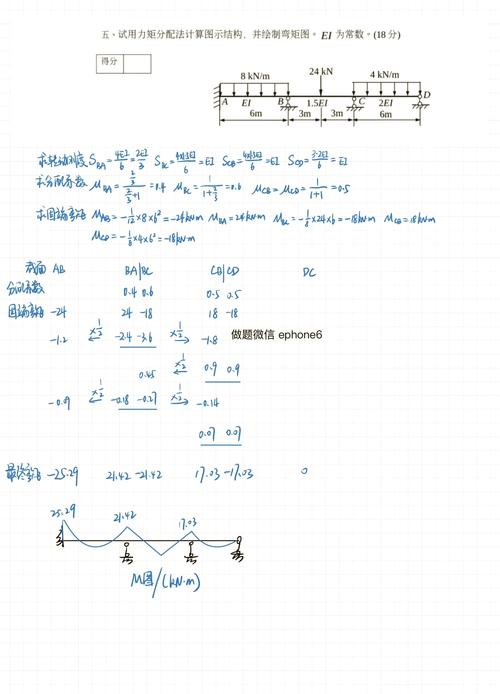 五、试用力矩分配法计算图示结构、并绘制弯矩图。EI 为常数。(18 分)
得分
8 kN/m 24 kN 4 kN/m
A EI B 1.5EI C 2EI D
6m 3m 3m 6m
求转动刚度 S_BA=4EI/6=2EI/3 S_BC=4×1.5EI/6=EI S_CB=4×1.5EI/6=EI S_CD=3·2EI/6=EI
求分配系数 μ_BA=(2/3)/(2/3+1)=0.4 μ_BC=1/(1+2/3)=0.6 μ_CB=μ_CD=1/(1+1)=0.5
求固端弯矩 M_AB=-1/12×8×6²=-24kN·m M_BA=24kN·m M_BC=-1/8×24×6=-18kN·m M_CB=18kN·m
M_CD=-1/8×4×6²=-18kN·m
截面 AB BA BC CB CD DC
分配系数 0.4 0.6 0.5 0.5
固端弯矩 -24 24 -18 18 -18
-1.2 ×1/2 -2.4 -3.6 ×1/2 -1.8 做题微信 ephone6
0.45 ×1/2 0.9 0.9
-0.09 ×1/2 -0.18 -0.27 ×1/2 -0.14
0.07 0.07
最终弯矩 -25.29 21.42 -21.42 17.03 -17.03 0
25.29 21.42 17.03
M图/(kN·m)